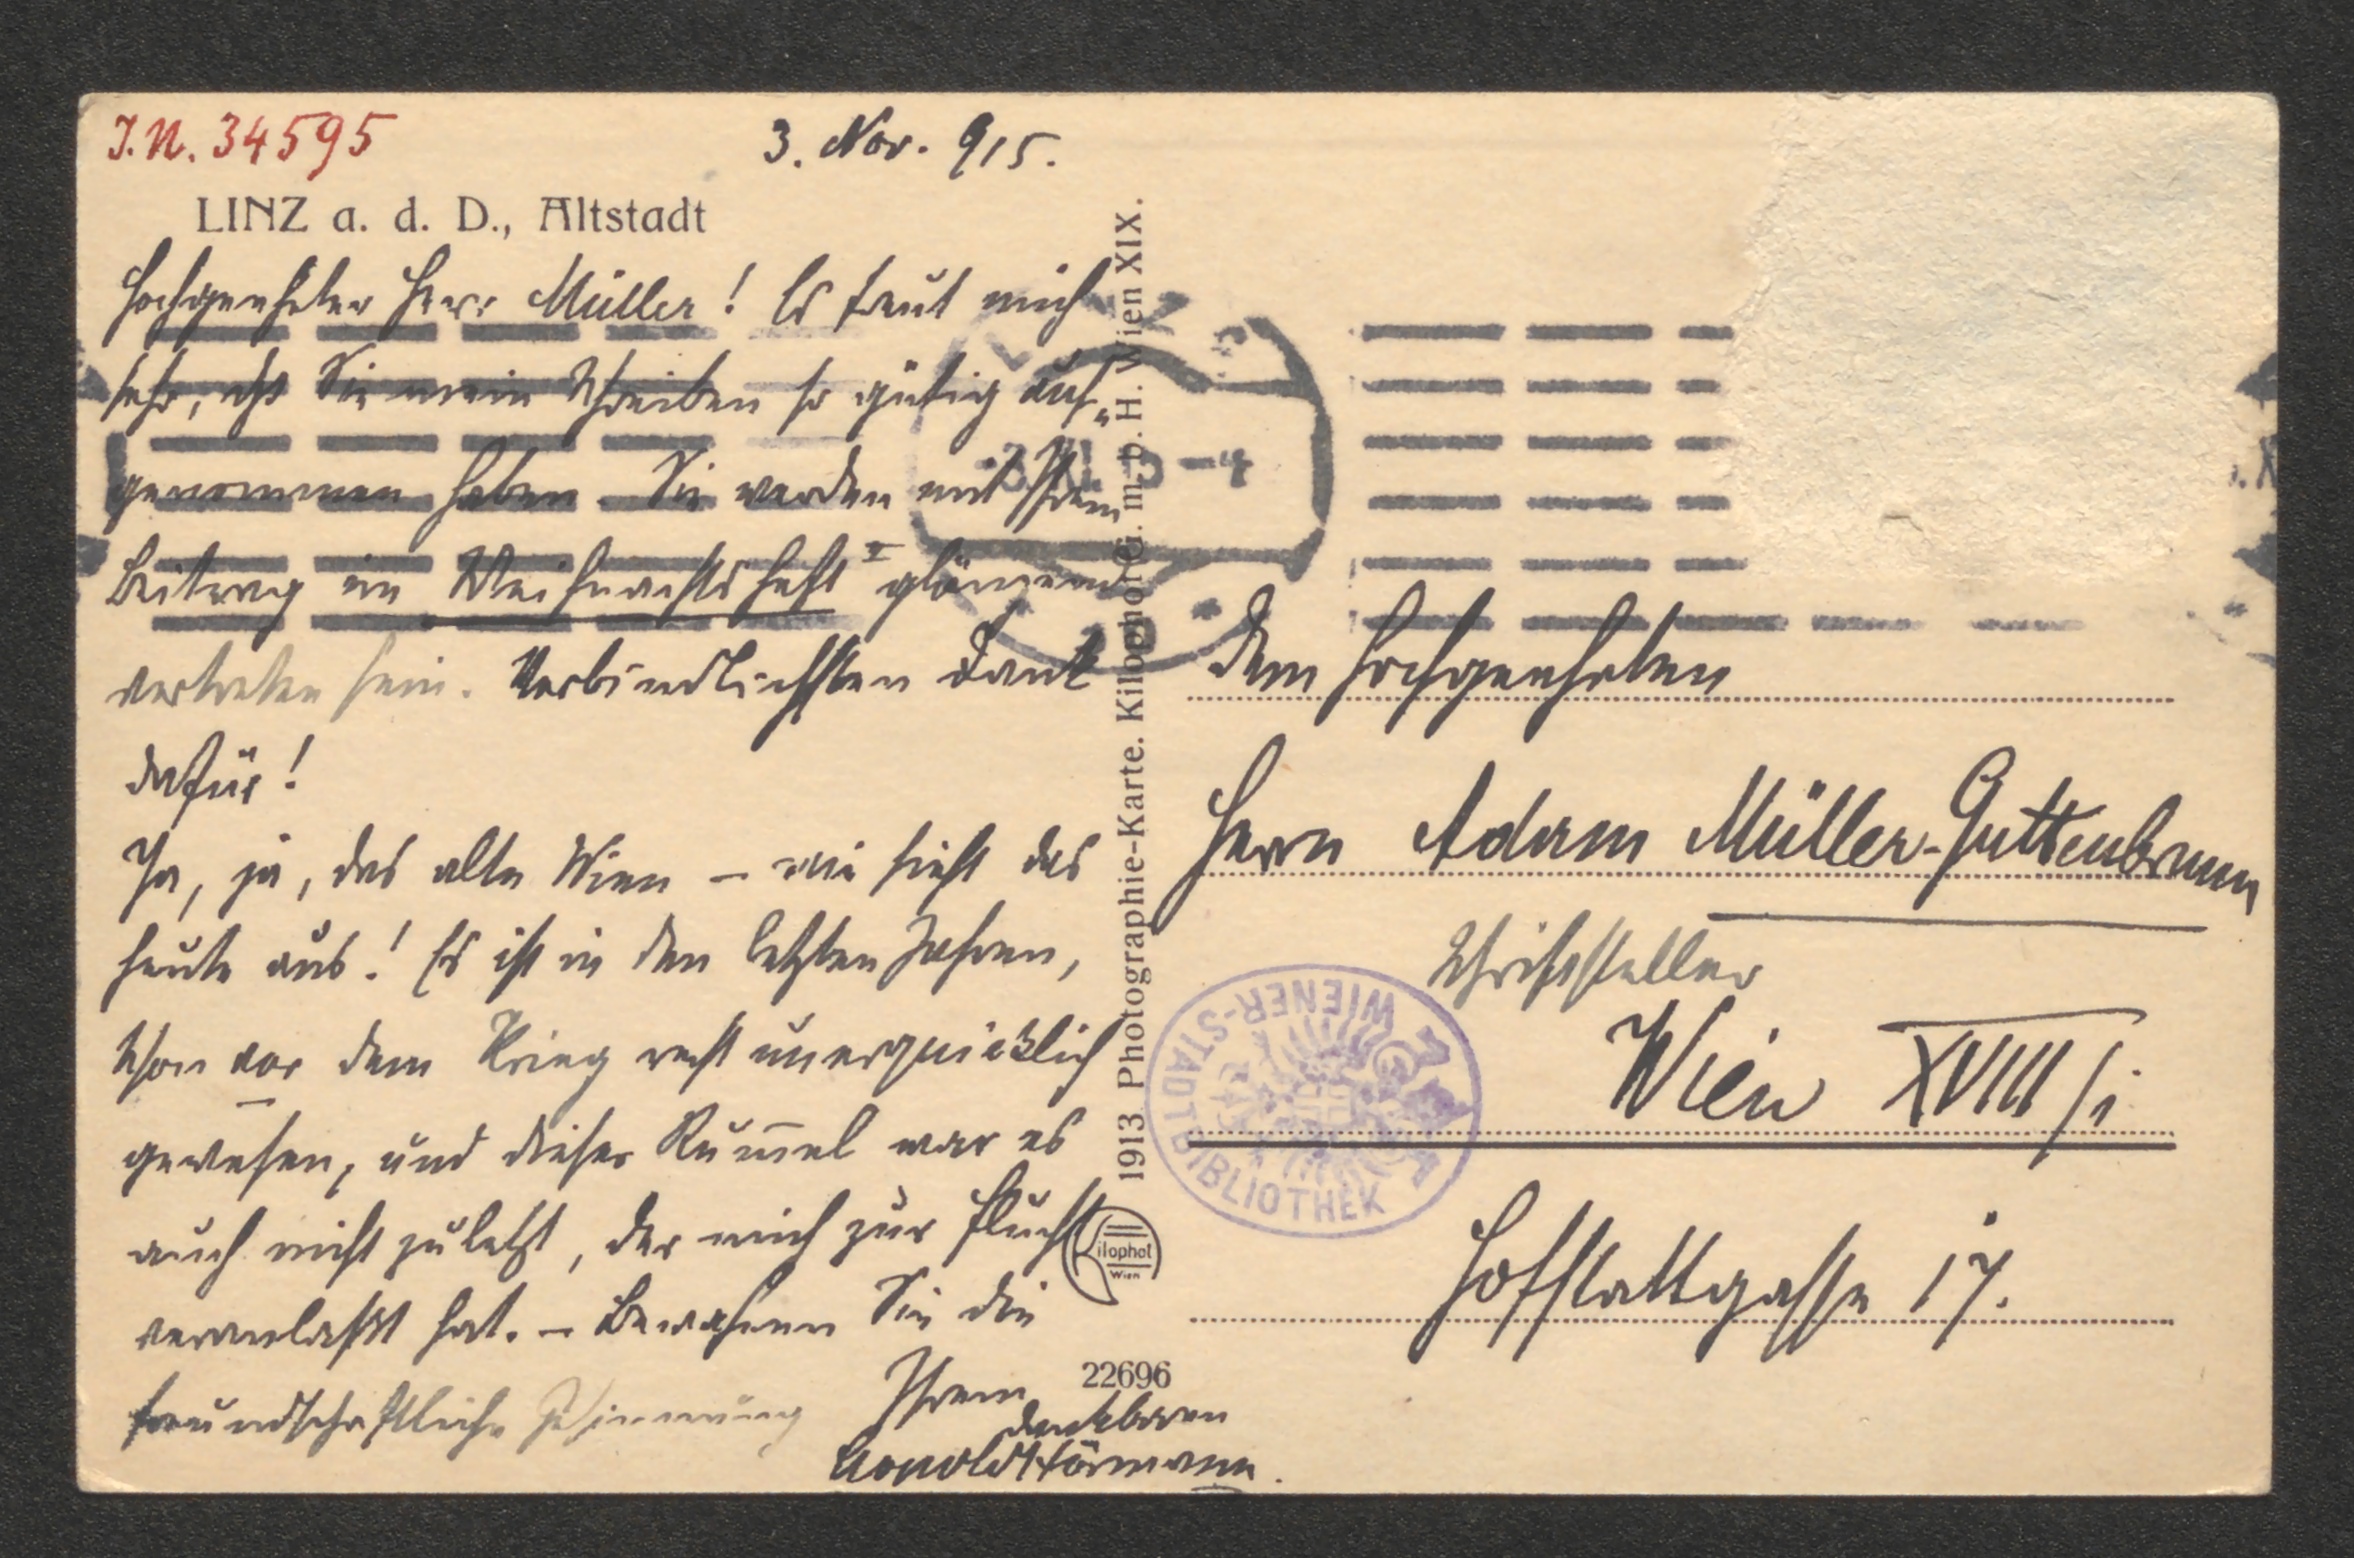 J.N. 34595
3. Nov. 915.
LINZ a. d. D., Altstadt
Hochgeehrter Herr Müller! Es freut mich
sehr, daß Sie mein Schreiben so gütig auf-
genommen haben. Sie werden mit Ihrem
Beitrag im Weihnachtsheft glänzend
vertreten sein. Verbindlichsten Dank
dafür!
Ja, ja, das alte Wien – wie sieht das
heute aus! Es ist in den letzten Jahren,
schon vor dem Krieg recht unerquicklich
gewesen, und dieser Rum̄el war es
auch nicht zuletzt, der mich zur Flucht
veranlaßt hat. – Bewahren Sie die
freundschaftliche Gesinnung
Ihrem
dankbaren
Leopold Hörmann.
1913 Photographie-Karte. Kilophot G. m. b. H. Wien XIX.
Kilophot
Wien
22696
Dem hochgeehrten
Herrn Adam Müller-Guttenbrunn
Schriftsteller
Wien XVIII/1
Hofstattgasse 17.
WIENER-STADTBIBLIOTHEK